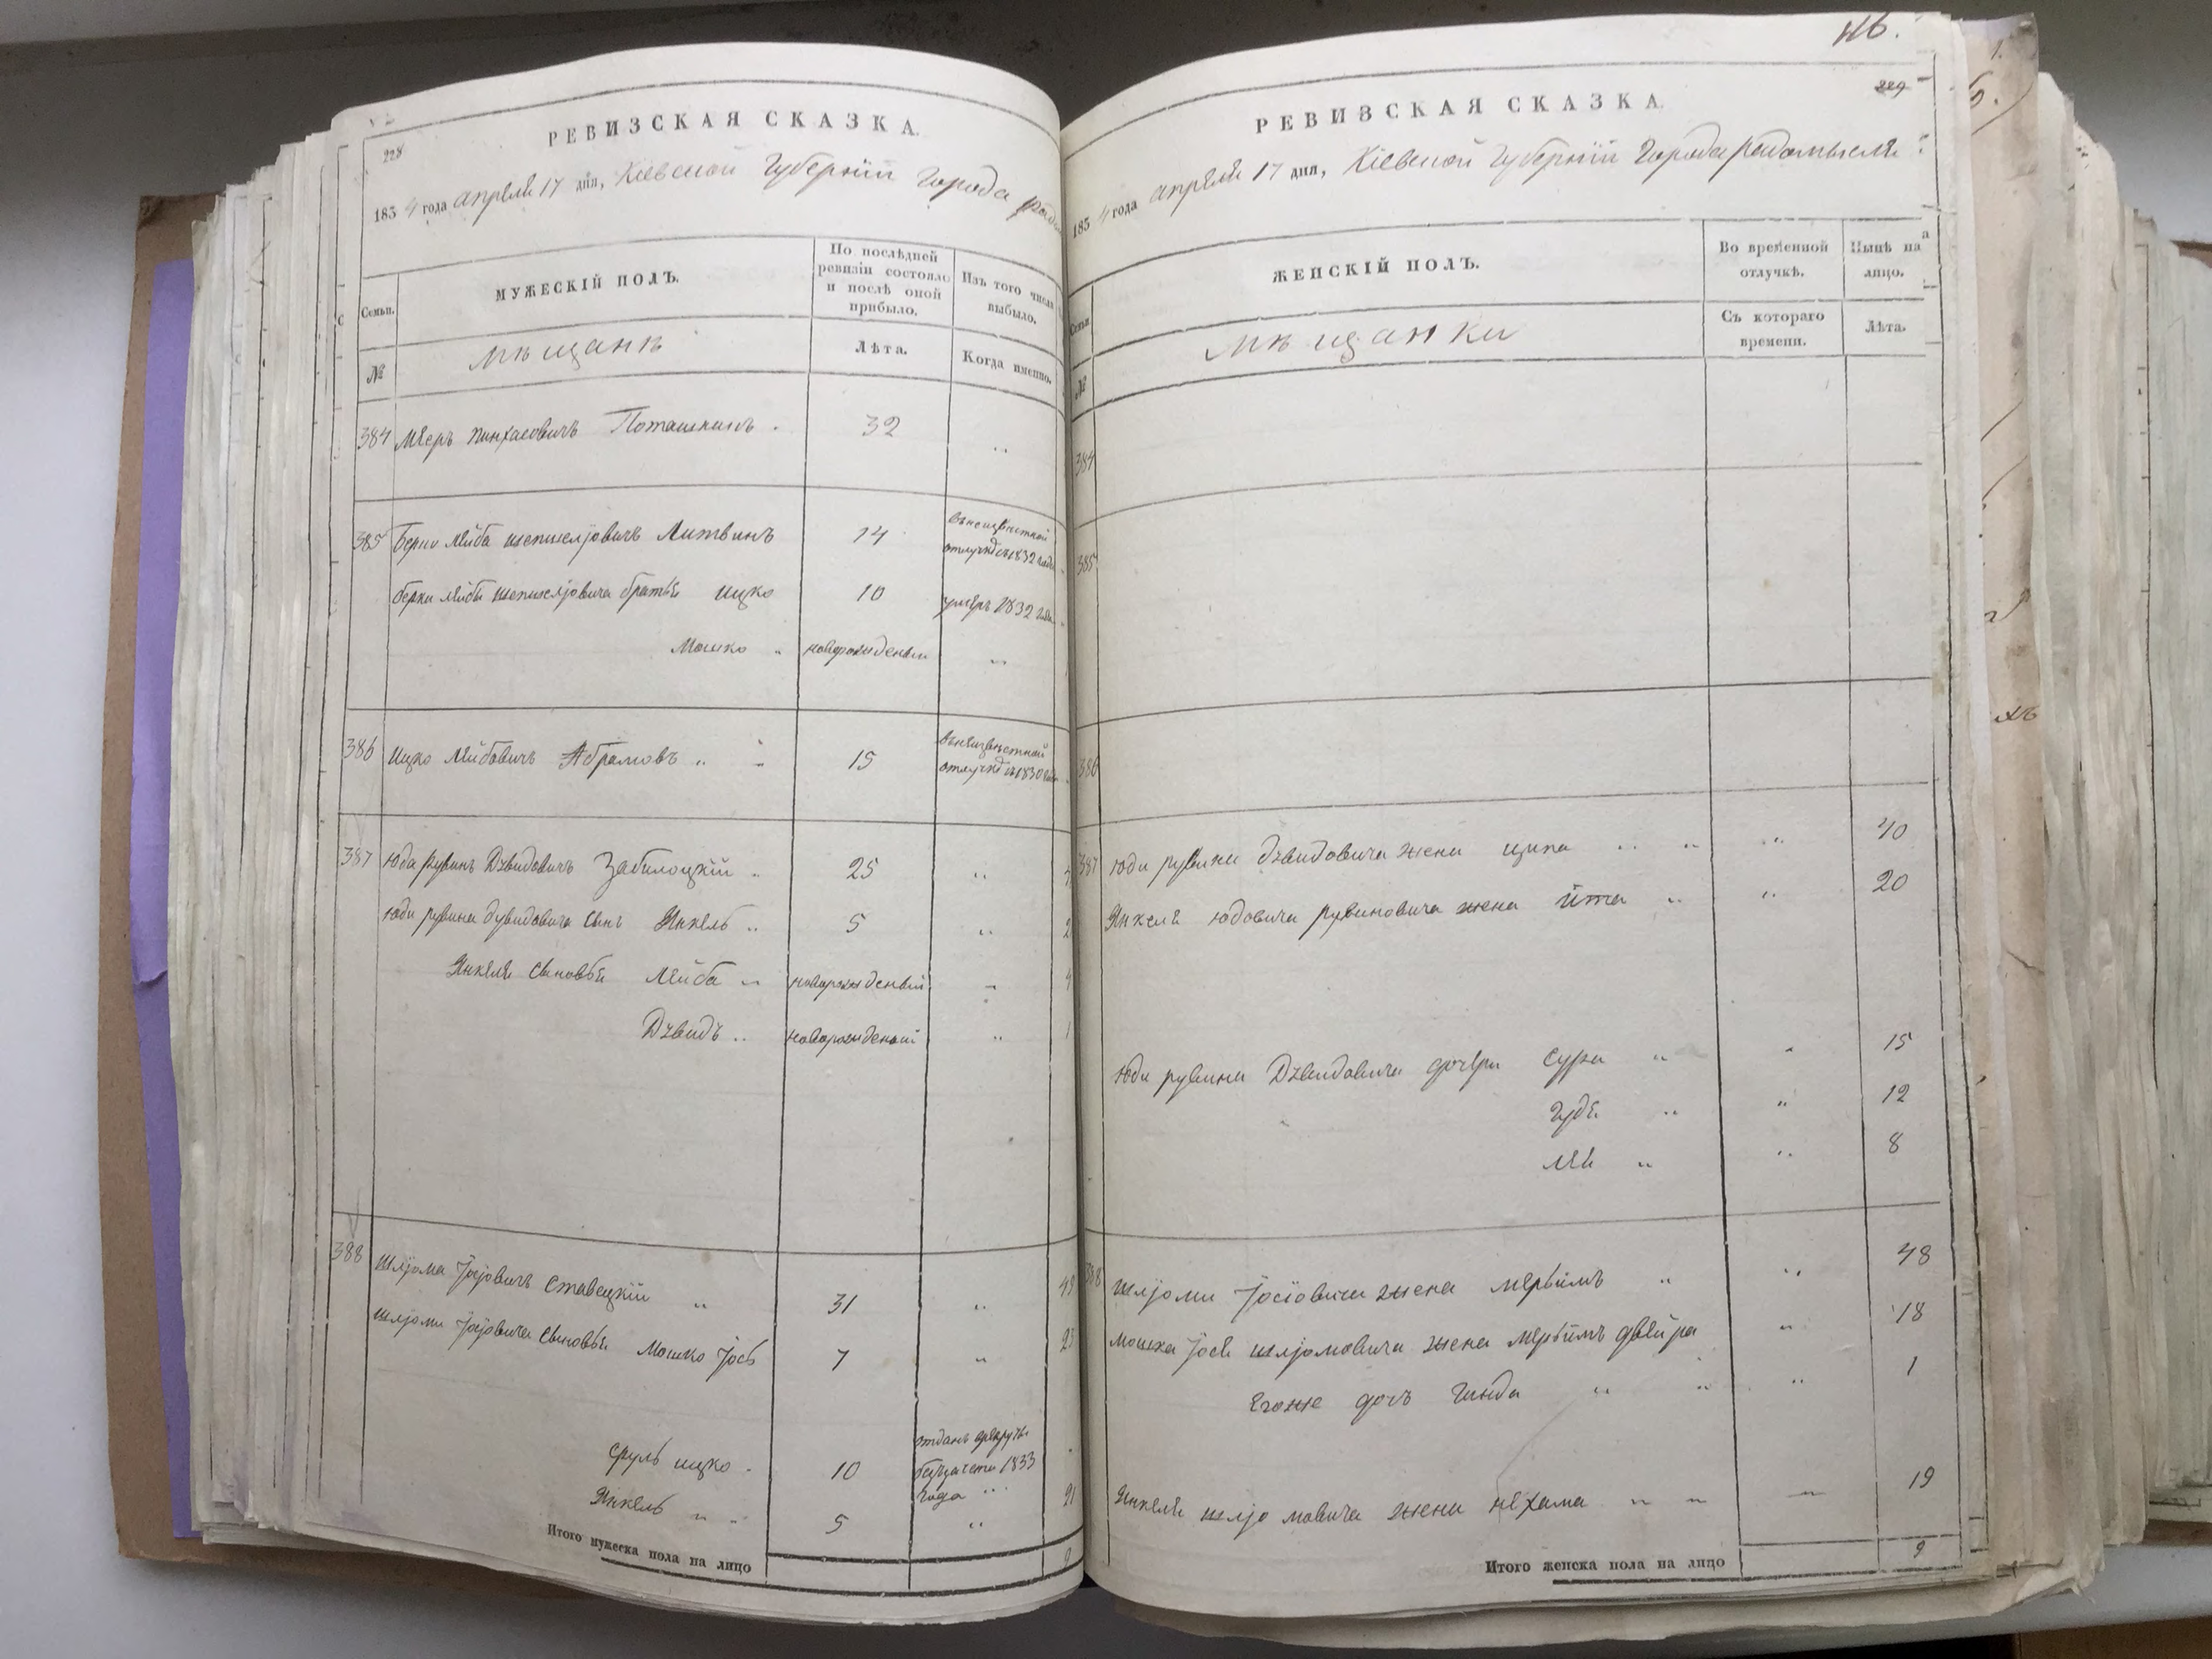 228
РЕВИЗСКАЯ СКАЗКА.
1834 года апреля 17 дня, Кіевской Губерніи Города
Семьи.
МУЖЕСКІЙ ПОЛЪ.
По послѣдней ревизіи состояло и послѣ оной прибыло.
Изъ того числа выбыло.
№
мѣщанѣ
Лѣта.
Когда именно.
384 Мееръ Пинхасовичъ Поташникъ 32
385 Берко Лейба Шепшелѳвичъ Литвинъ 14 въ неизвѣстной отлучкѣ съ 1832 года
берки лейбы братья Ицко 10 умеръ 1832 года
Мошко новорожденый
386 Ицко Лейбовичъ Абрамовъ 15 въ неизвѣстной отлучкѣ съ 1830
387 Юда рувинъ Дувидовичъ Забилоцкій 25
Юди рувина дувидовича сынъ Янкель 5
Янкеля сыновья Лейба новорожденый
Дувидъ новорожденый
388 Шлјома Јосјовичъ Ставецкій 31
шлјоми Јосјовича сыновья Мошко Јось 7
сруль ицко 10 отданъ врекруты беззачета 1833 года
Янкель 5
Итого мужеска пола на лицо
116.
229
РЕВИЗСКАЯ СКАЗКА.
1834 года апреля 17 дня, Кіевской Губерніи Города радомысля
ЖЕНСКІЙ ПОЛЪ.
Во временной отлучкѣ.
Нынѣ на лицо.
№
мѣщанки
Съ котораго времени.
Лѣта.
384
385
386
387 Юди рувина дувидовича жена ципа 40
Янкеля юдовича рувиновича жена йта 20
Юди рувина Дувидовича дочери сура 15
гудя 12
лея 8
388 шлјоми Јосіовича жена мерьимъ 48
мошка Јося шлјомовича жена мерьимъ двейра 18
егоже дочъ Гинда 1
Янкеля шлјомовича жена нехама 19
Итого женска пола на лицо 9